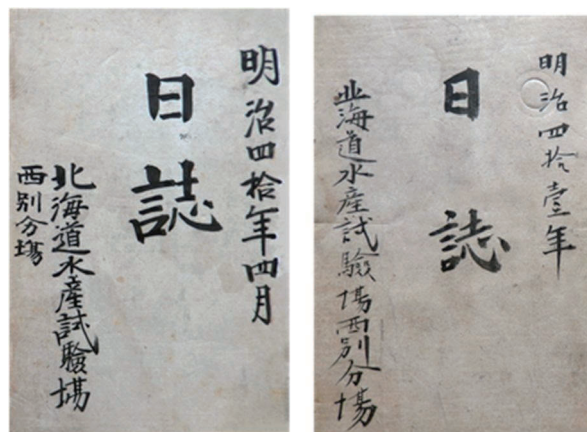 明治四拾年四月
日誌
北海道水産試験場
西別分場
明治四拾壹年
日誌
北海道水産試驗場西別分場